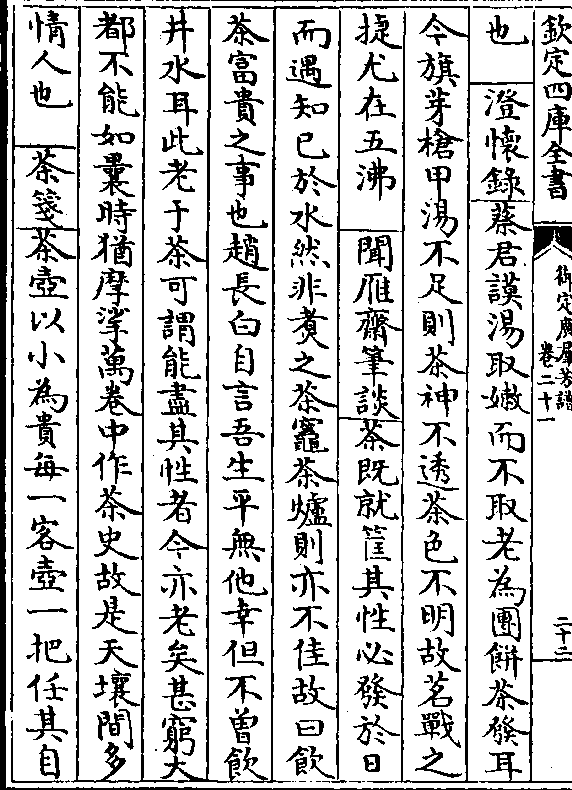 欽定四庫全書
御定廣羣芳譜
卷二十一
二十二
也　澄懷錄蔡君謨湯取嫩而不取老為團餅茶發耳
今旗芽槍甲湯不足則茶神不透茶色不明故茗戰之
捷尤在五沸　聞雁齋筆談茶既就筐其性必發於日
而遇知已於水然非煑之茶竈茶爐則亦不佳故曰飲
茶富貴之事也趙長白自言吾生平無他幸但不曾飲
井水耳此老于茶可謂能盡其性者今亦老矣甚窮大
都不能如曩時猶摩挲萬卷中作茶史故是天壤間多
情人也　茶箋茶壺以小為貴每一客壺一把任其自